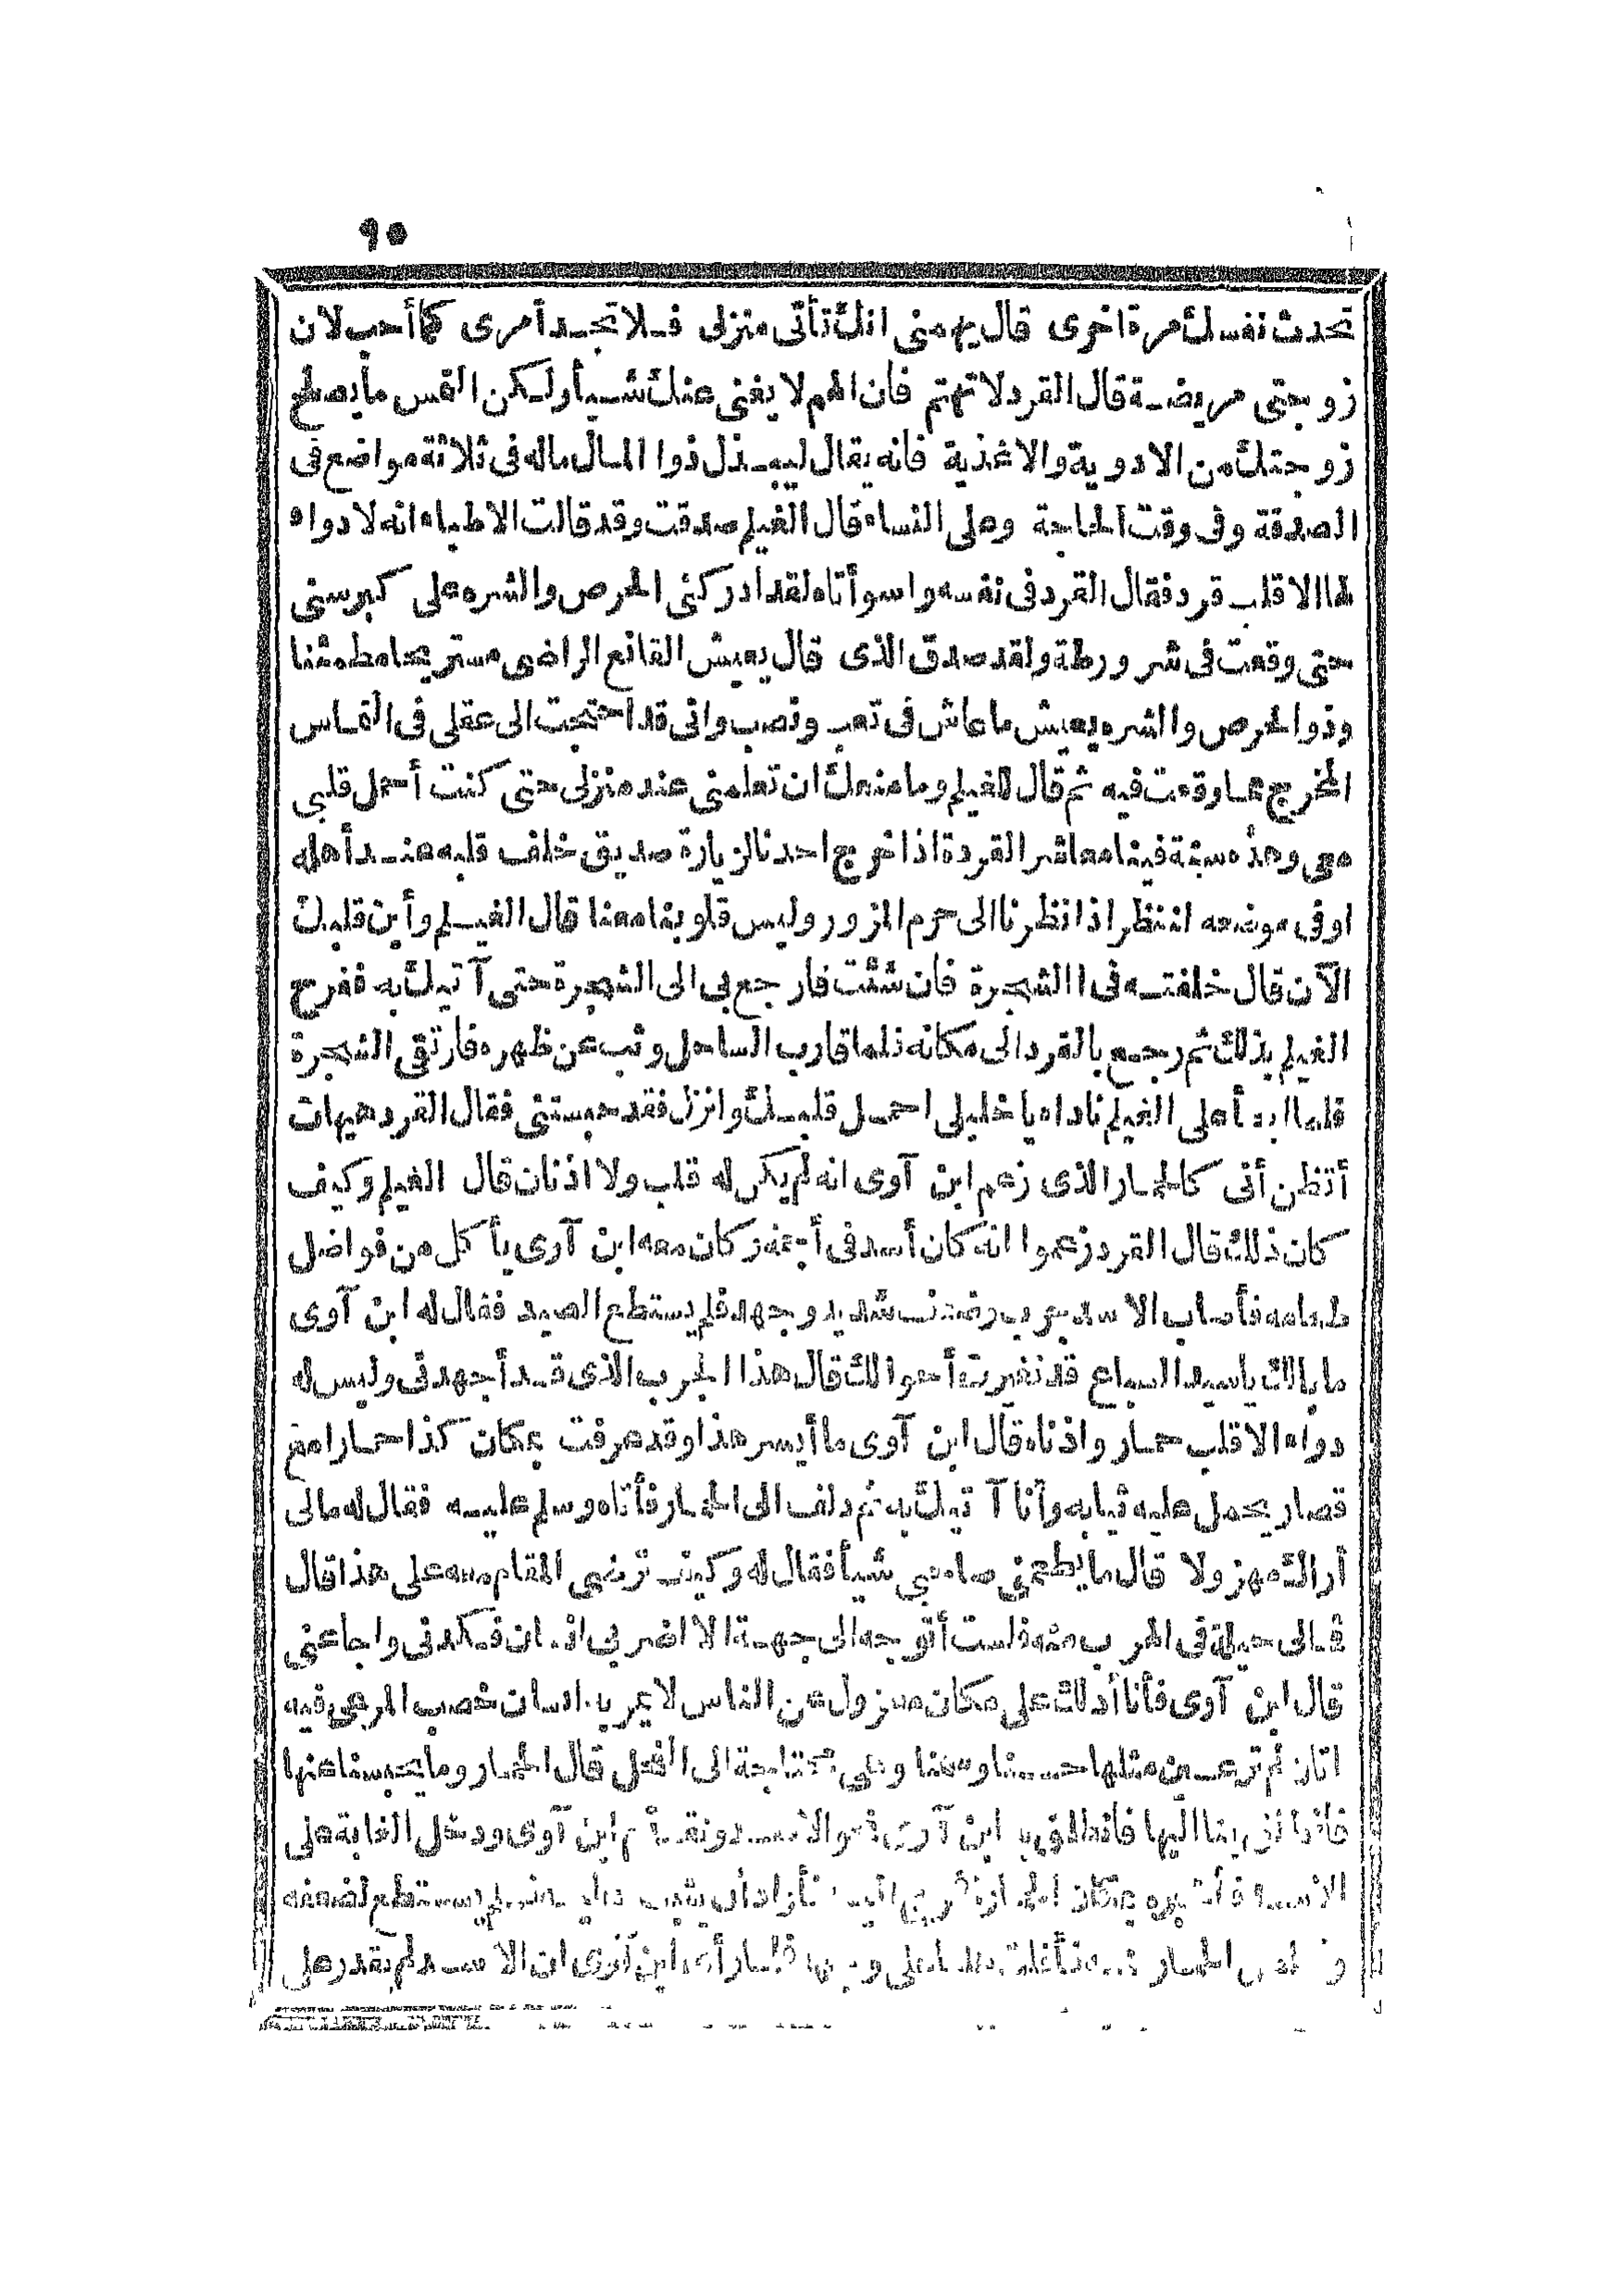 ٩٥
تحدث نفسك مرة اخرى قال يهمنى انك تأتى منزلى فلا تجد أمرى كما أحب لان
زوجتى مريضة قال القرد لا تهتم فان الهم لا يغنى عنك شيأ ولكن التمس ما يصلح
زوجتك من الادوية والاغذية فانه يقال ليبذل ذوا المال ماله فى ثلاثة مواضع فى
الصدقة وفى وقت الحاجة وعلى النساء قال الغيلم صدقت وقد قالت الاطباء انه لا دواء
لها الا قلب قرد فقال القرد فى نفسه واسوأتاه لقد ادركنى الحرص والشره على كبر سنى
حتى وقعت فى شر ورطة ولقد صدق الذى قال يعيش القانع الراضى مستريحا مطمئنا
وذو الحرص والشره يعيش ما عاش فى تعب ونصب وانى قد احتجت الى عقلى فى التماس
المخرج مما وقعت فيه ثم قال للغيلم وما منعك ان تعلمنى عند منزلى حتى كنت أحمل قلبى
معى وهذه سنة فينا معاشر القردة اذا خرج احدنا لزيارة صديق خلف قلبه عند أهله
او فى موضعه لننظر اذا نظرنا الى حرم المزور وليس قلوبنا معنا قال الغيلم وأين قلبك
الآن قال خلفته فى الشجرة فان شئت فارجع بى الى الشجرة حتى آتيك به ففرح
الغيلم بذلك ثم رجع بالقرد الى مكانه فلما قارب الساحل وثب عن ظهره فارتقى الشجرة
فلما ابطأ على الغيلم ناداه يا خليلى احمل قلبك وانزل فقد حبستنى فقال القرد هيهات
أتظن أنى كالحمار الذى زعم ابن آوى انه لم يكن له قلب ولا اذنان قال الغيلم وكيف
كان ذلك قال القرد زعموا انه كان أسد فى أجمة وكان معه ابن آوى يأكل من فواضل
طعامه فأصاب الاسد جرب وضعف شديد وجهد فلم يستطع الصيد فقال له ابن آوى
ما بالك يا سيد السباع قد تغيرت أحوالك قال هذا الجرب الذى قد أجهدنى وليس له
دواء الا قلب حمار واذناه قال ابن آوى ما أيسر هذا وقد عرفت بمكان كذا حمارا مع
قصار يحمل عليه ثيابه وأنا آتيك به ثم دلف الى الحمار فأتاه وسلم عليه فقال له مالى
أراك مهزولا قال ما يطعمنى صاحبى شيأ فقال له وكيف ترضى المقام معه على هذا قال
فمالى حيلة فى الهرب منه فلست أتوجه الى جهة الا اضربى انسان فكدنى واجاعنى
قال ابن آوى فأنا أدلك على مكان معزول عن الناس لا يمر به انسان خصب المرعى فيه
اتان لم تر عين مثلها حسنا وسمنا وهى محتاجة الى الفحل قال الحمار وما يحبسنا عنها
فانطلق بنا اليها فانطلق به ابن آوى نحو الاسد وتقدم ابن آوى ودخل الغابة على
الاسد فأخبره بمكان الحمار فخرج اليه فأراد أن يثب عليه فلم يستطع لضعفه
الحمار على وجهه فلما رأى ابن آوى ان الاسد لم يقدر على